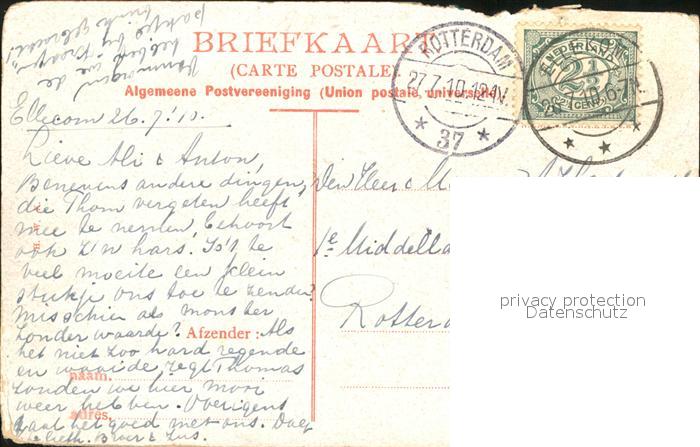 BRIEFKAAR
(CARTE POSTALE
Algemeene Postvereeniging (Union postale universelle
ROTTERDAM
27.7.10.12-1N.
37
NEDERLAND
2½
CENT
Ellecom 26.7.'10.
Lieve Ali & Anton,
Benevens andere dingen,
die Thom vergeten heeft
mee te nemen, behoort
ook z'n hars. Is 't te
veel moeite een klein
stukje ons toe te zenden?
Misschien als monster
zonder waarde? Afzender: Als
het niet zoo hard regende
en waaide, zegt Thomas
naam.
zouden we hier mooi
weer hebben. Overigens
adres.
gaat het goed met ons. Dag
Broer & Zus.
Den Heer & M
1e Middella
Rotterd
privacy protection
Datenschutz